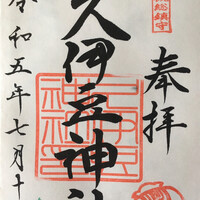 奉拝
久伊豆神社
令和五年七月十
総鎮守